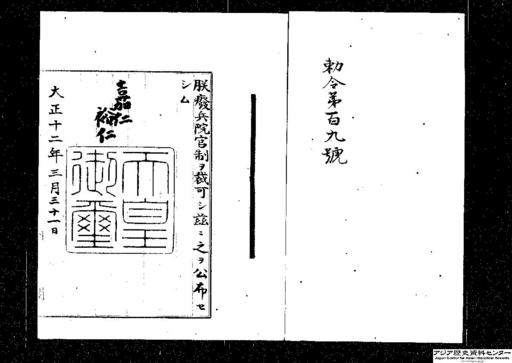 勅令第百九號
朕廢兵院官制ヲ裁可シ茲ニ之ヲ公布セ
シム
嘉仁
裕仁
天皇
御璽
大正十二年三月三十一日
アジア歴史資料センター
Japan Center for Asian Historical Records